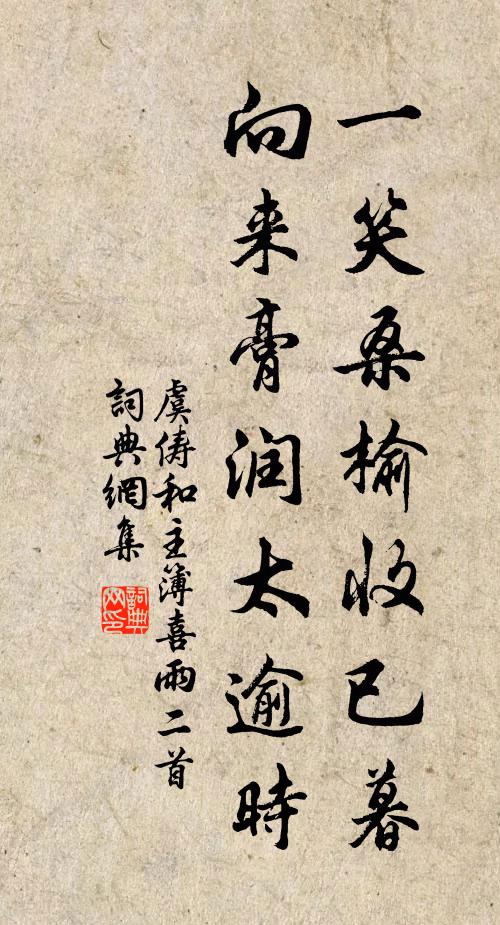 一笑桑榆收已暮
向来膏润太逾時
虞儔和主簿喜雨二首
詞典網集
詞典網印